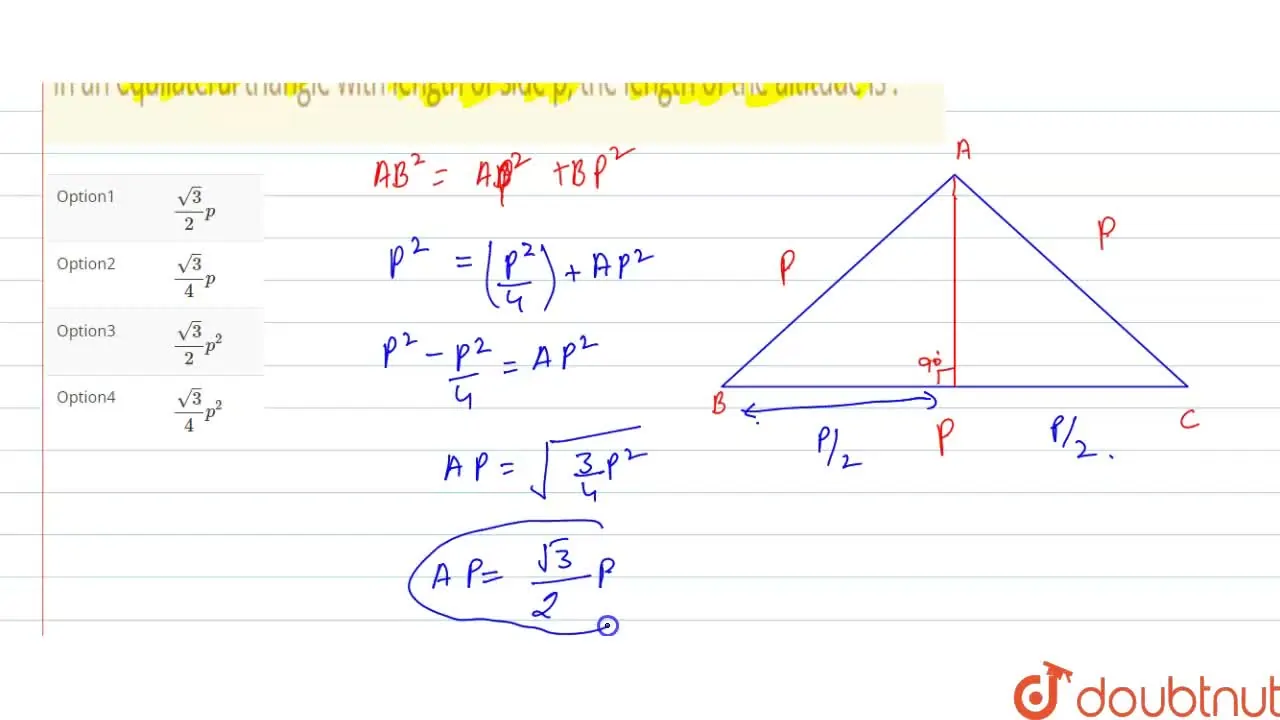 In an equilateral triangle with length of side p, the length of the altitude is ?
Option1 √3/2 p
Option2 √3/4 p
Option3 √3/2 p²
Option4 √3/4 p²
AB² = AP² + BP²
P² = (P²/4) + AP²
P² - P²/4 = AP²
AP = √(3/4 P²)
AP = √3/2 P
A
P
P
90°
B
P
C
P/2
P/2 .
doubtnut